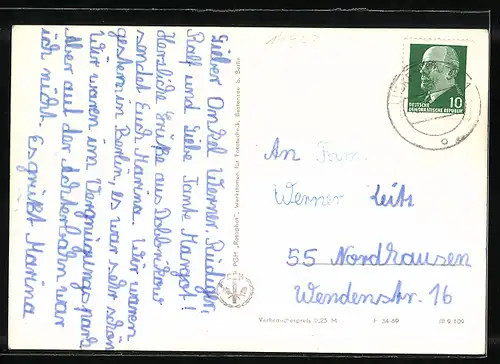 Lieber Onkel Werner, Rüdiger,
Ralf und liebe Tante Margot!
Herzliche Grüße aus Dobbrikow
sendet Euch Marina. Wir waren
gestern in Berlin, es war sehr schön
Wir waren im Vergnügungspark
Aber auf der Achterbahn war
ich nicht. Es grüßt Marina
PGH „Rotophot", Werkstätten für Fototechnik, Bestensee b. Berlin
DEUTSCHE
DEMOKRATISCHE REPUBLIK
10
An Fam.
Werner Seitz
55 Nordhausen
Wendenstr. 16
Verbraucherpreis 0,25 M
F 34-69